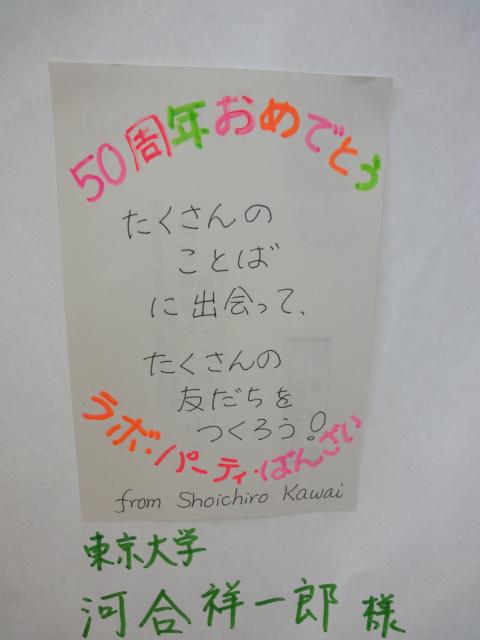 50周年おめでとう
たくさんの
ことば
に出会って、
たくさんの
友だちを
つくろう!
ラボ・パーティ・ばんざい
from Shoichiro Kawai
東京大学
河合祥一郎 様